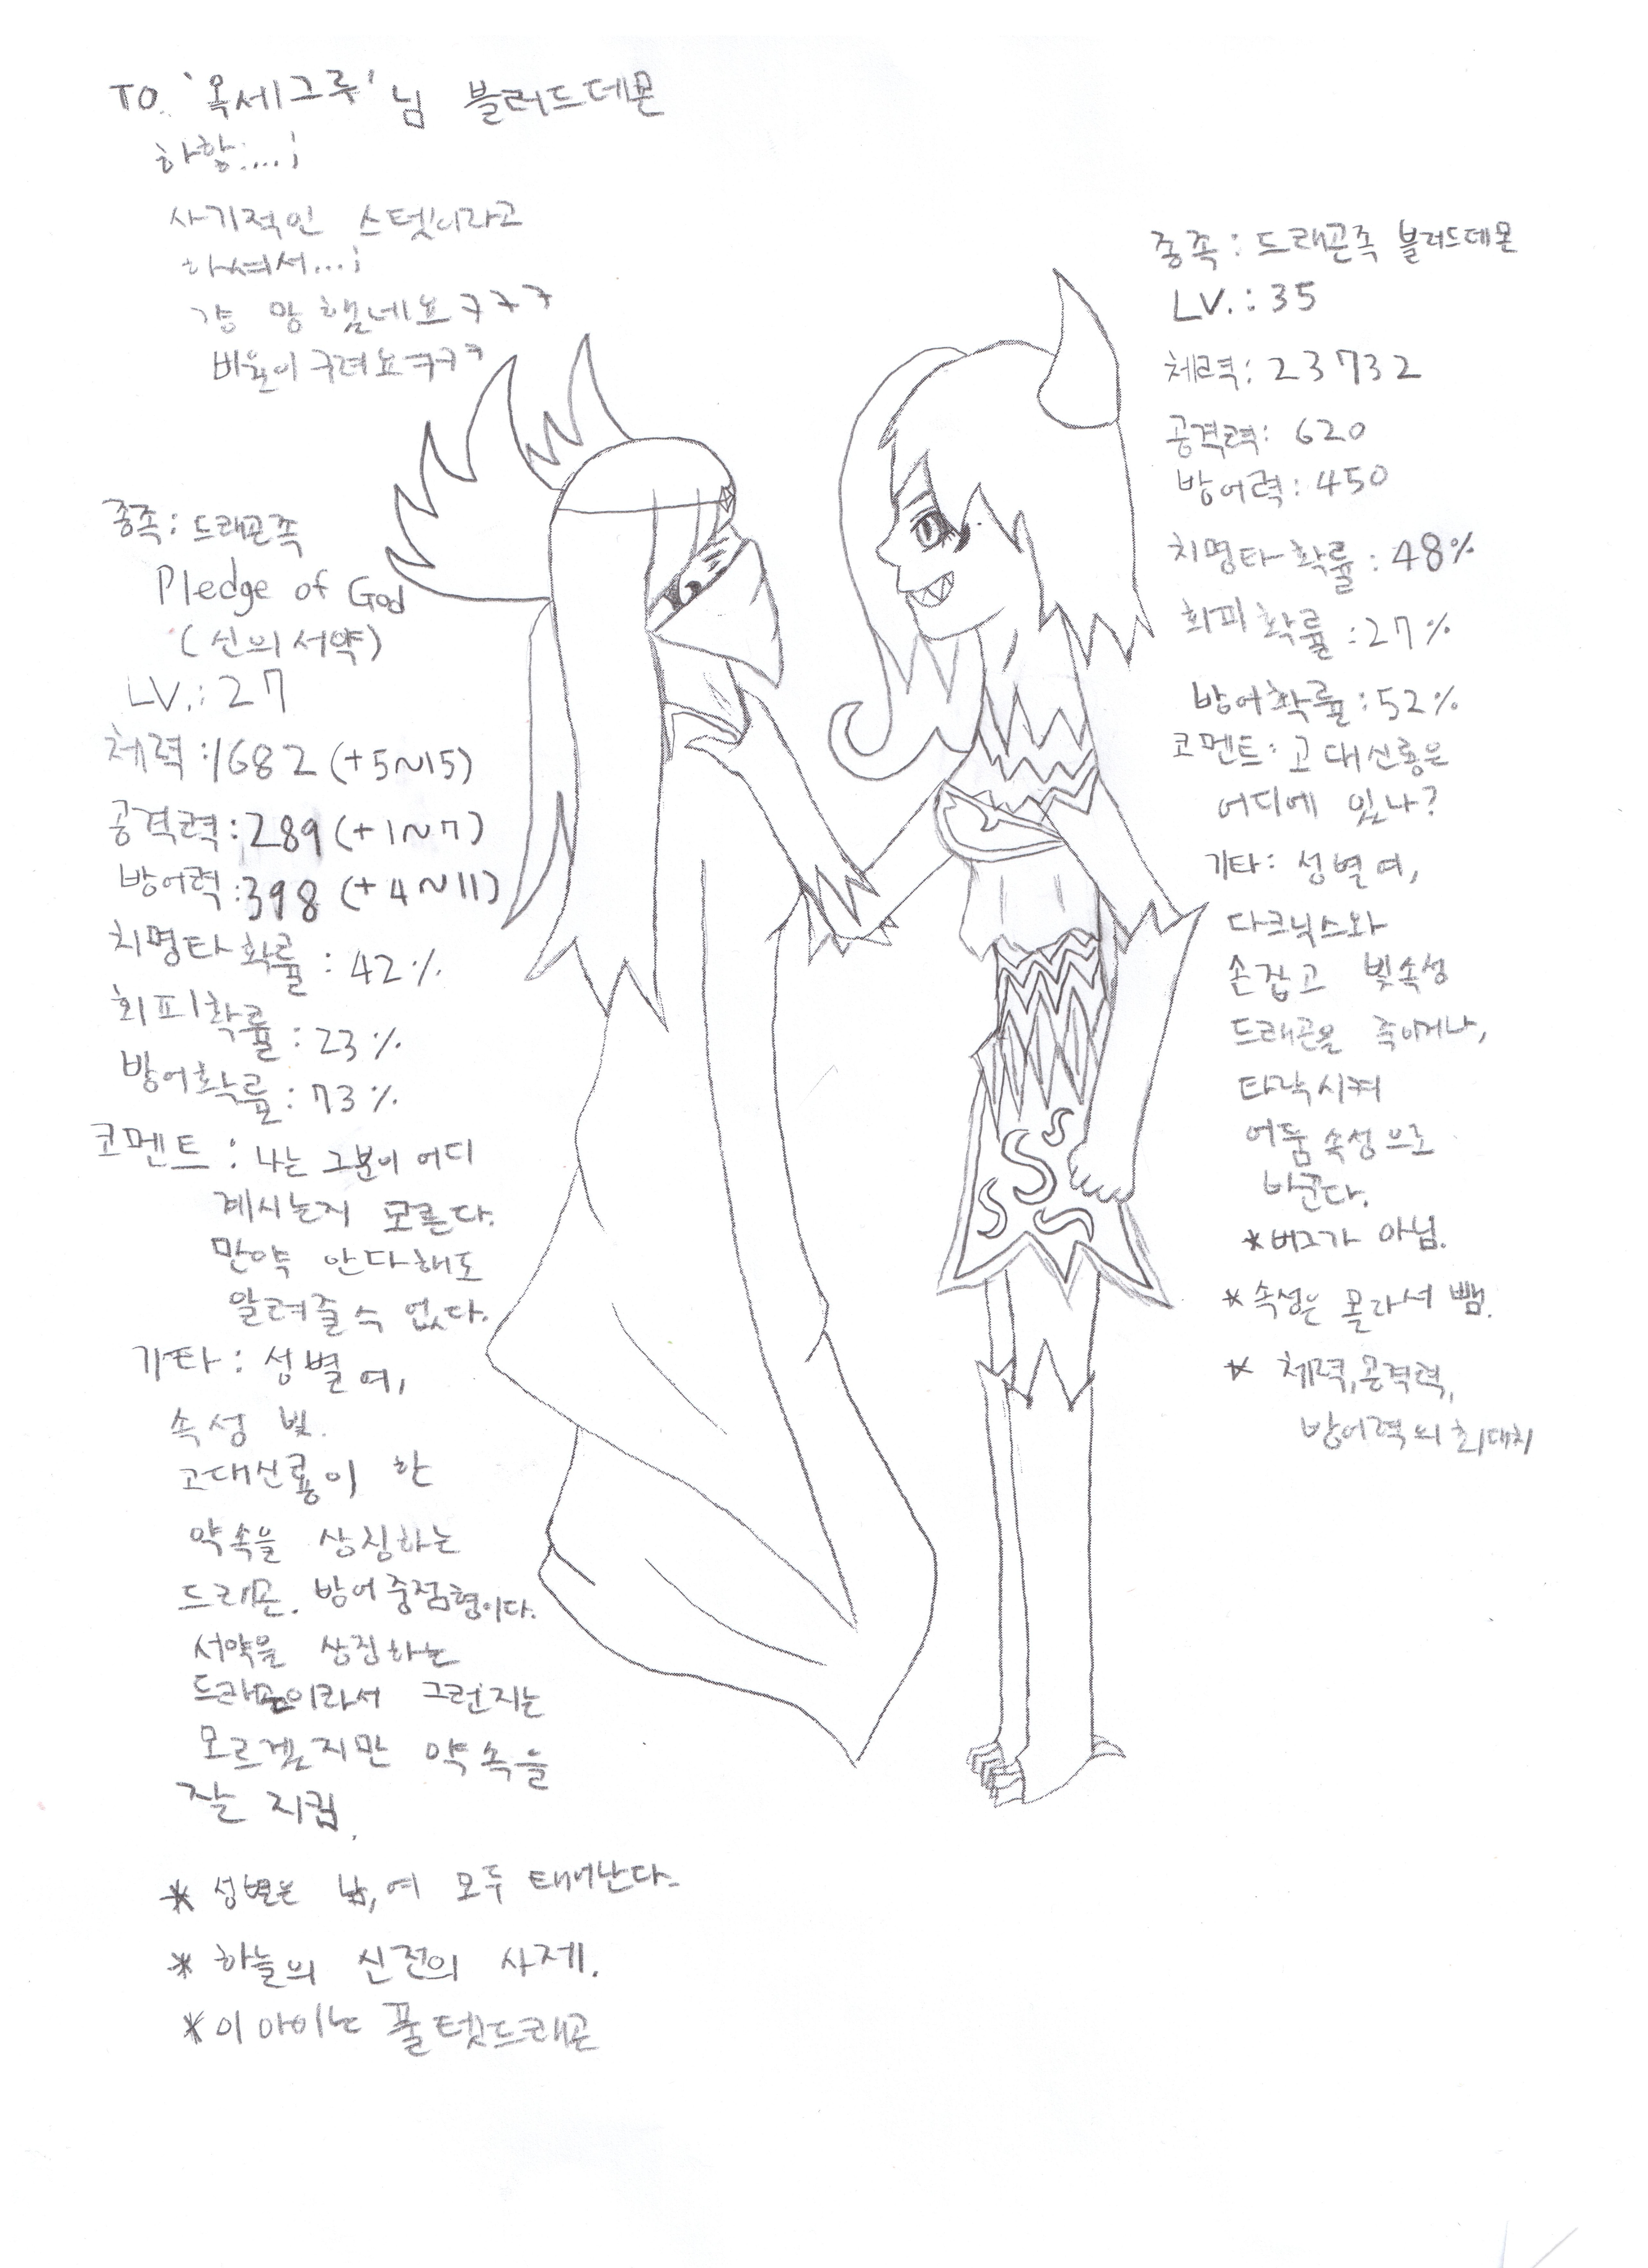 TO. '옥세그루'님 블러드데몬
하핳:...;
사기적인 스텟이라고
하셔서...;
걍 망했네요 ㅋㅋㅋ
비율이 구려요 ㅋㅋㅋ
종족: 드래곤족
Pledge of God
(신의 서약)
LV.: 27
체력: 1682 (+5~15)
공격력: 289 (+1~7)
방어력: 398 (+4~11)
치명타 확률: 42%
회피확률: 23%
방어확률: 73%
코멘트: 나는 그분이 어디
계시는지 모른다.
만약 안다해도
알려줄 수 없다.
기타: 성별 여,
속성 빛.
고대신룡이 한
약속을 상징하는
드래곤. 방어중점형이다.
서약을 상징하는
드래곤이라서 그런지는
모르겠지만 약속을
잘 지킴.
* 성별은 남,여 모두 태어난다.
* 하늘의 신전의 사제.
* 이 아이는 풀텟드래곤
종족: 드래곤족 블러드데몬
LV.: 35
체력: 23732
공격력: 620
방어력: 450
치명타 확률: 48%
회피 확률: 27%
방어확률: 52%
코멘트: 고대신룡은
어디에 있나?
기타: 성별 여,
다크닉스와
손잡고 빛속성
드래곤을 죽이거나,
타락시켜
어둠속성으로
바꾼다.
*버그가 아님.
*속성은 몰라서 뺌.
* 체력,공격력,
방어력의 최대치